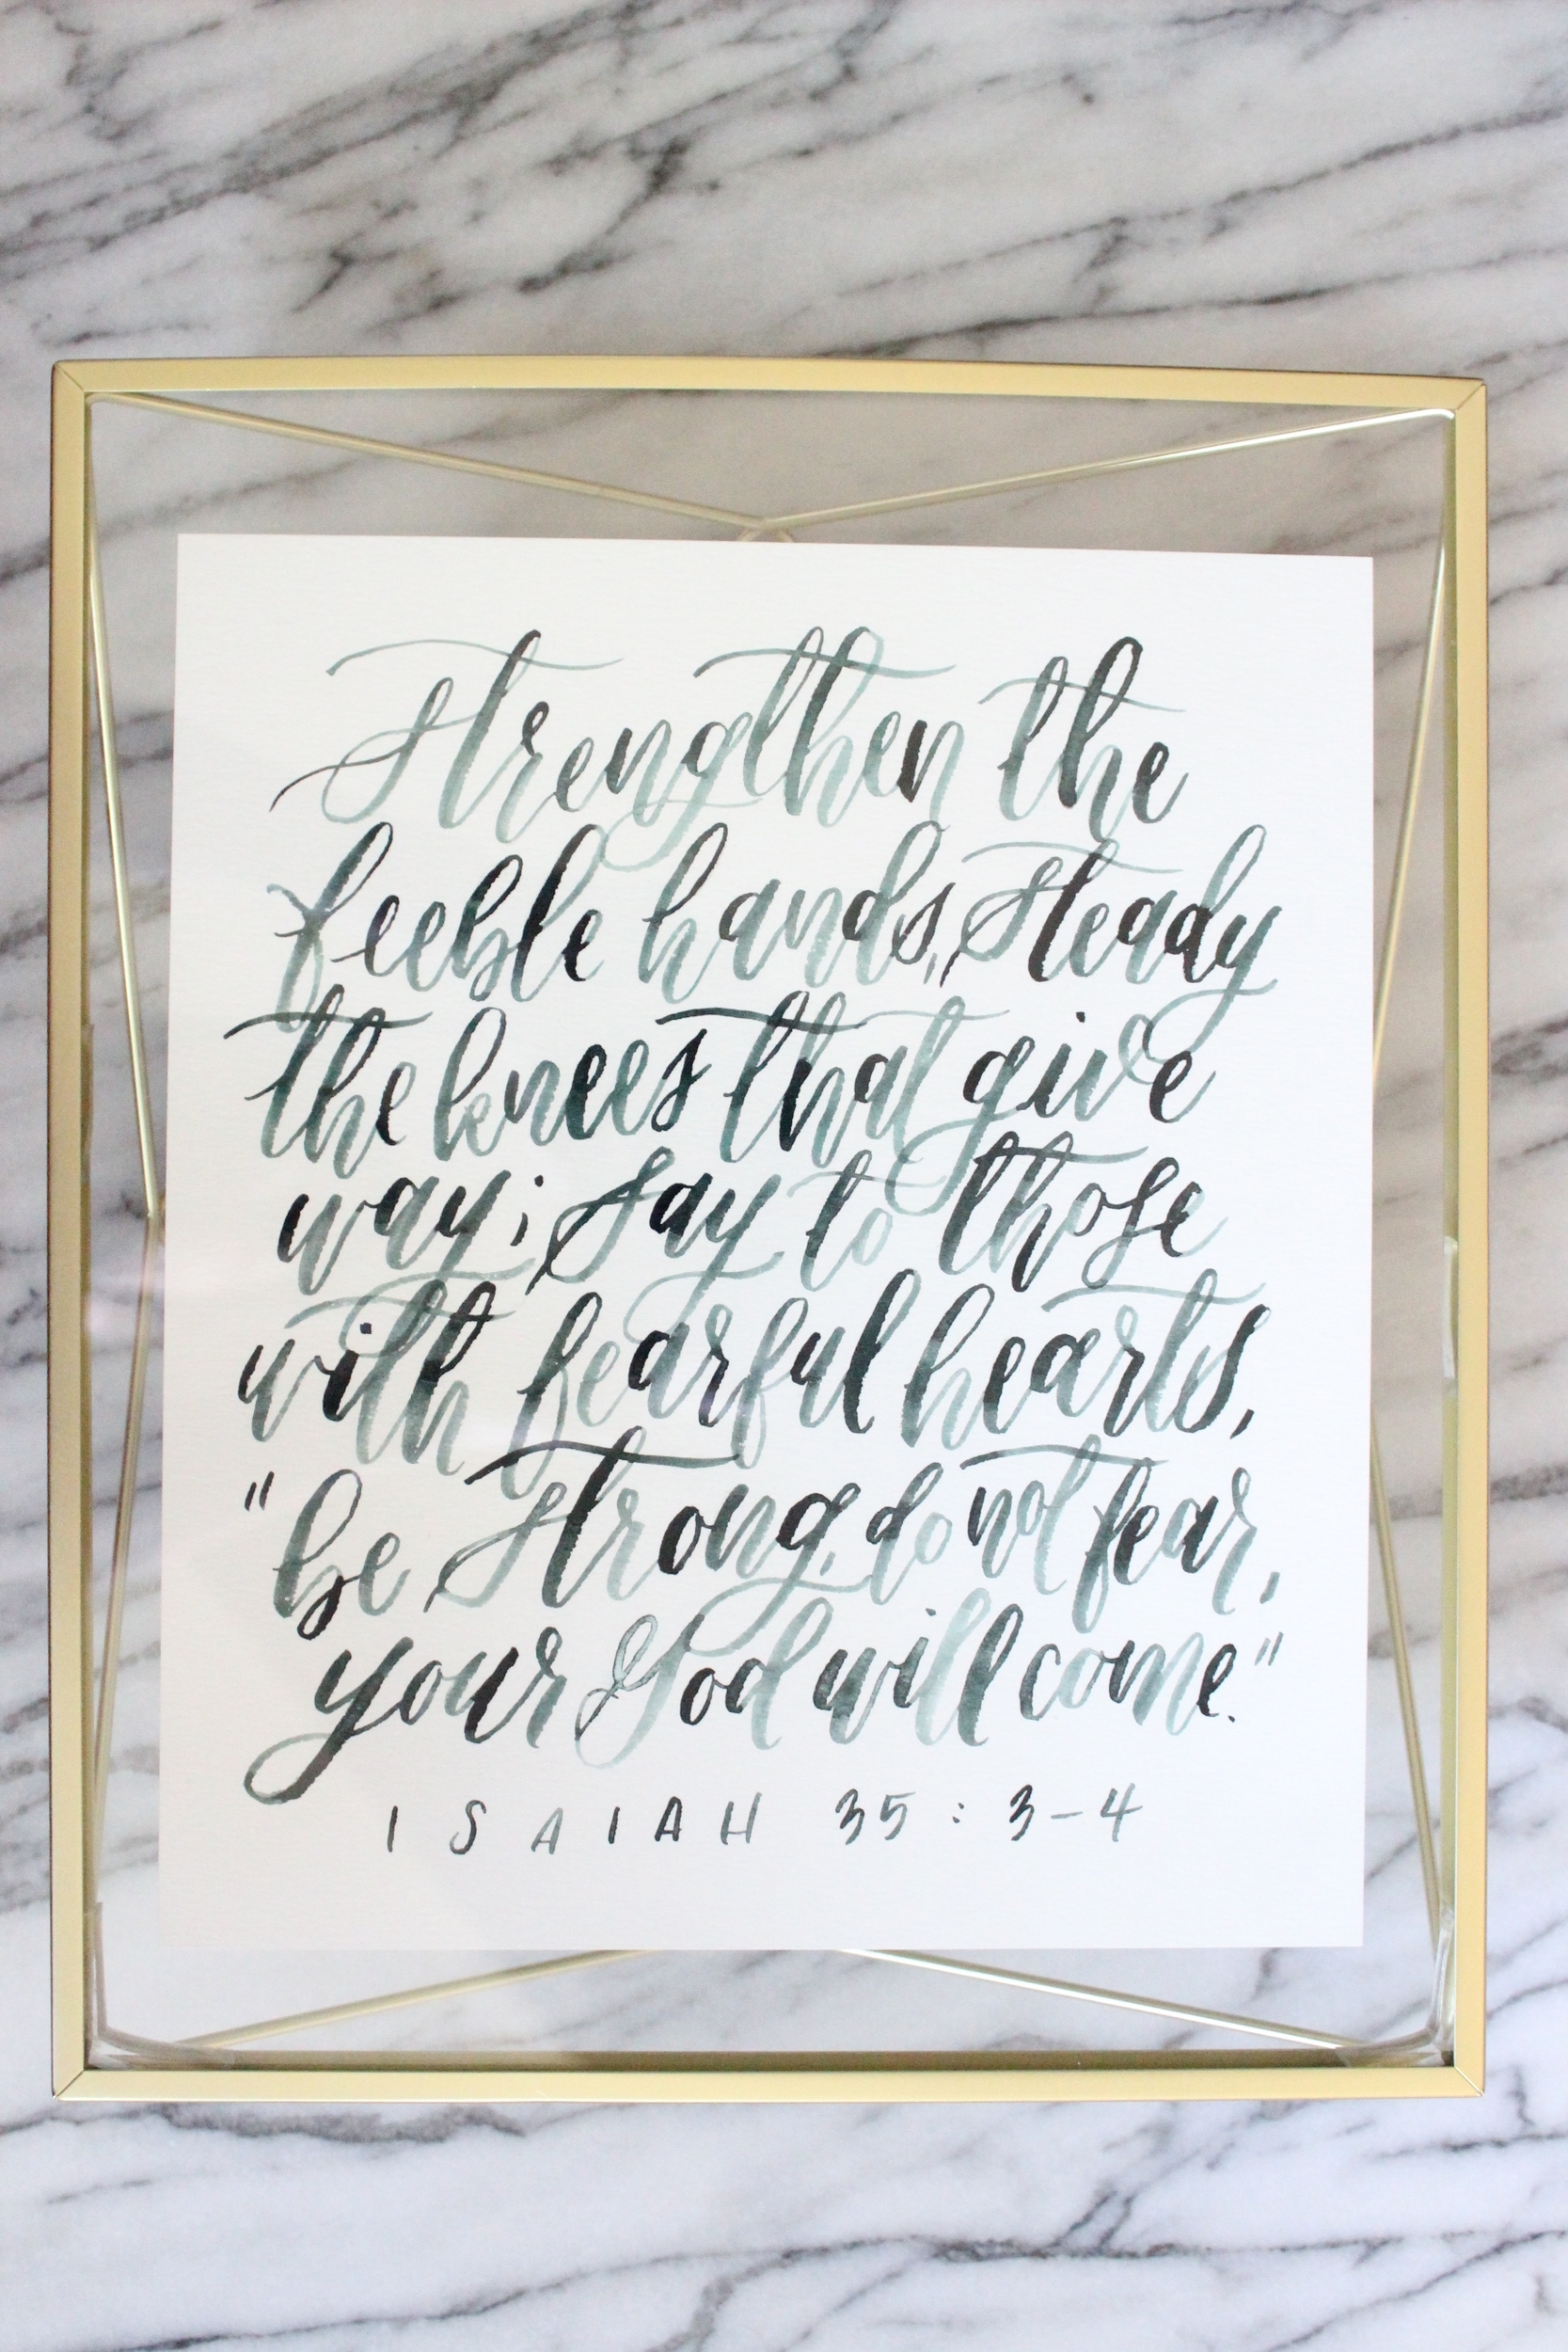 Strengthen the
feeble hands, steady
the knees that give
way; say to those
with fearful hearts,
"be strong, do not fear,
your God will come."
ISAIAH 35:3-4